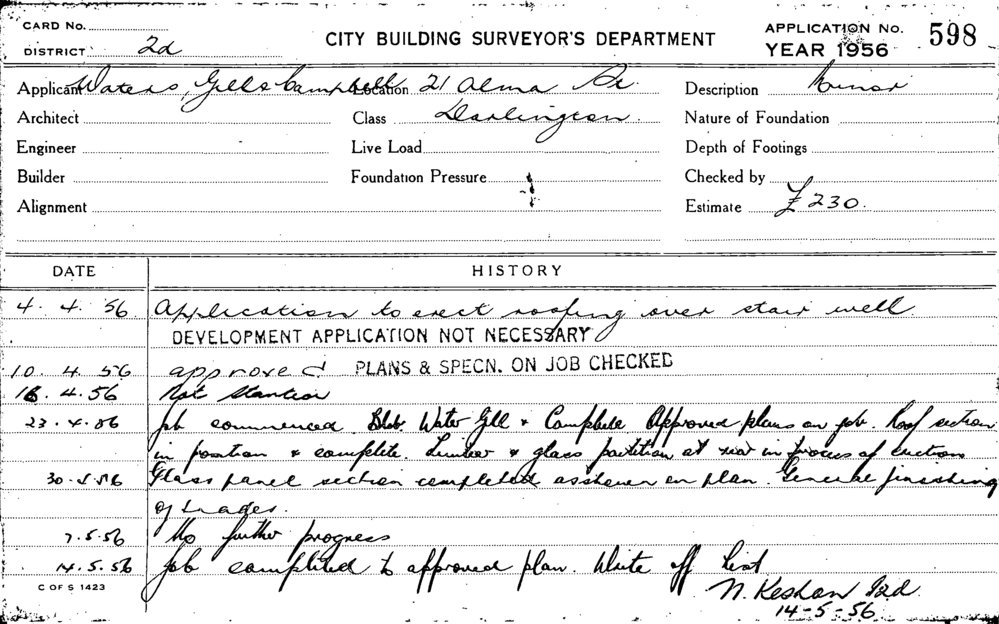 CARD No.
DISTRICT 2d
CITY BUILDING SURVEYOR'S DEPARTMENT
APPLICATION No. 598
YEAR 1956
Applicant Waters, Gill & Campbell Location 21 Alma St. Description Minor
Architect Class Darlington. Nature of Foundation
Engineer Live Load Depth of Footings
Builder Foundation Pressure Checked by
Alignment Estimate £230.
DATE HISTORY
4. 4. 56 Application to erect roofing over stair well
DEVELOPMENT APPLICATION NOT NECESSARY
10. 4. 56 approved PLANS & SPECN. ON JOB CHECKED
4.56 Not started
23.4.56 Job commenced. Bldr. Water Gill & Campbell Approved plans on job. Roof section
in position & complete. Timber & glass partition at in process of erection
56 Glass panel section completed as shewn on plan. General finishing
of trades.
7.5.56 No further progress
14.5.56 Job completed to approved plan. Write off list
C OF S 1423
N. Keshan 2d.
14-5-56